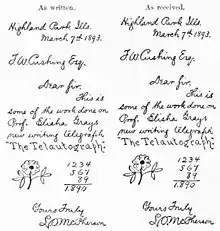 As written.
Highland Park Ills.
March 7th 1893.
F.W. Cushing Esq.
Dear Sir.
This is
some of the work done on
Prof. Elisha Grays
new writing telegraph
"The Telautograph."
1234
567
89
1890
Yours Truly
As received.
Highland Park Ills.
March 7th 1893.
F.W. Cushing Esq.
Dear Sir.
This is
some of the work done on
Prof. Elisha Grays
new writing telegraph
"The Telautograph."
1234
567
89
1890
Yours Truly